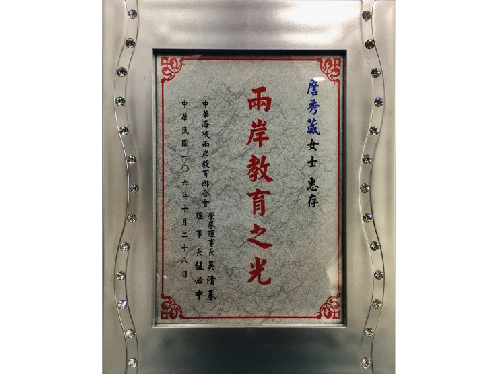 詹秀葳女士 惠存
兩岸教育之光
中華海峽兩岸教育聯合會
榮譽理事長 吳清基
理事長 程必中
中華民國一〇六年十月二十八日